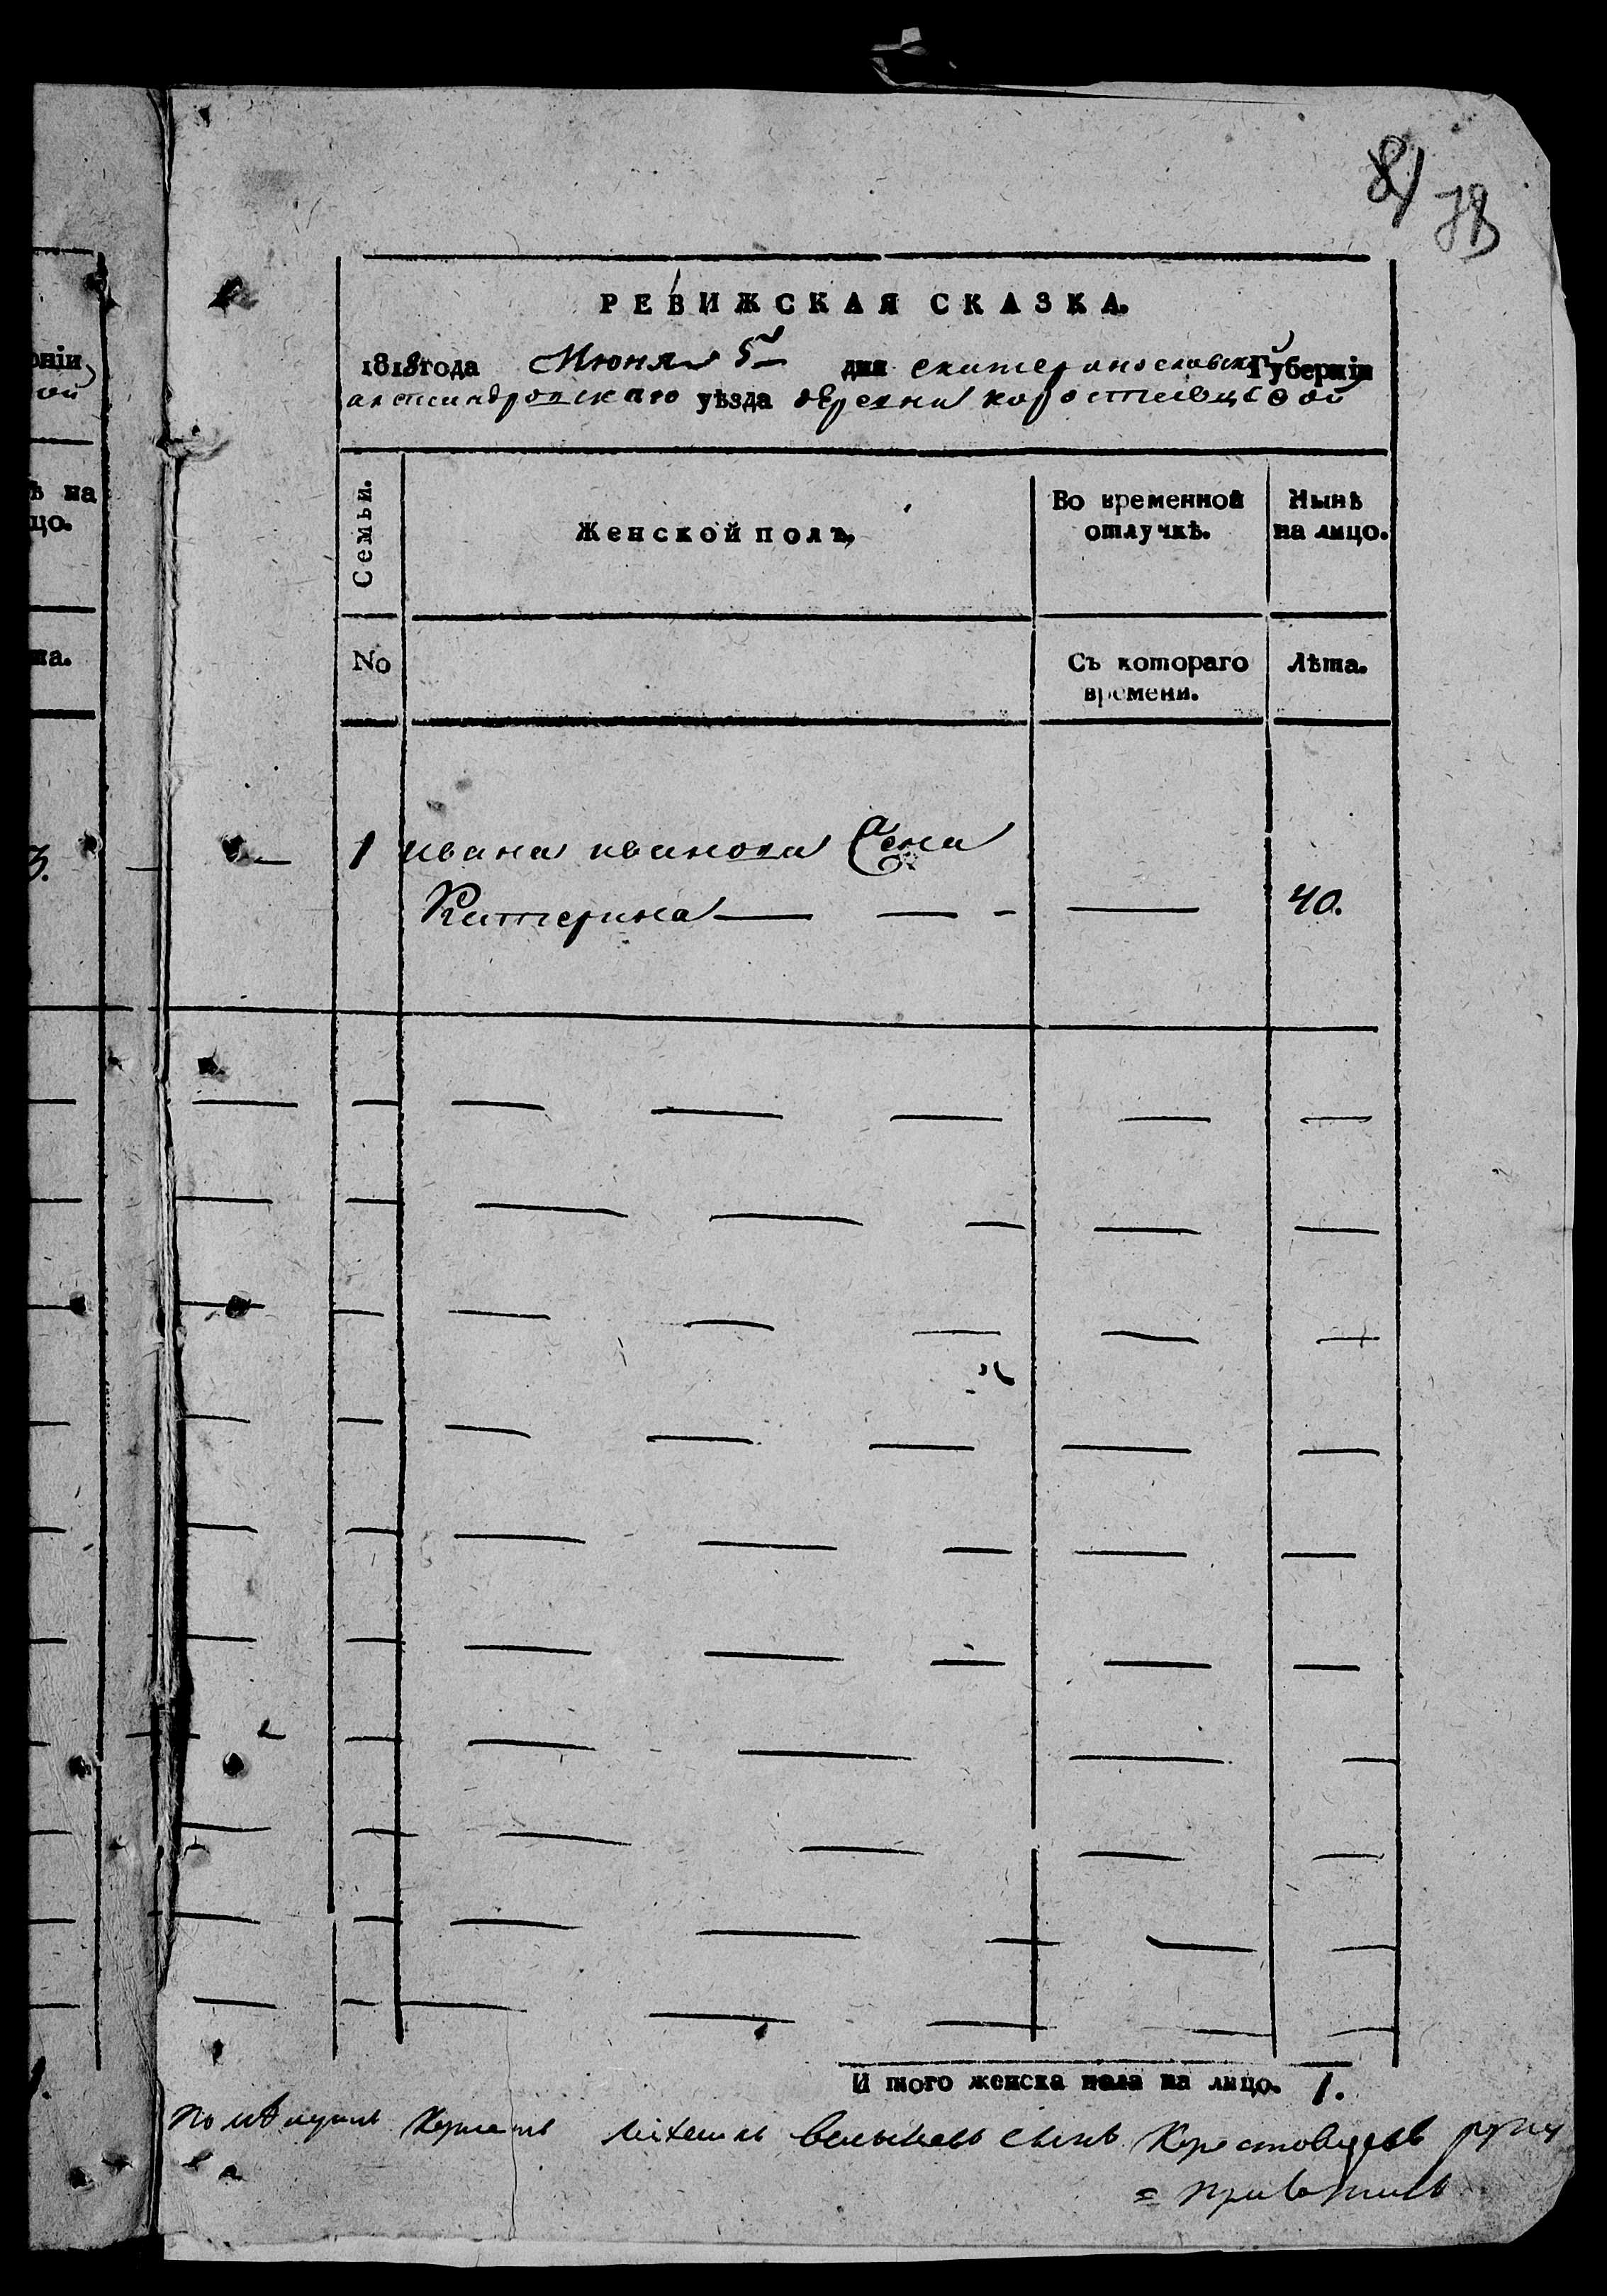 81 78
РЕВИЖСКАЯ СКАЗКА.
1818 года Июня 5 дня екатеринославской Губерніи
александровскаго уѣзда деревни коростовцовой
Семьи. Женской полъ, Во временной отлучкѣ. Нынѣ на лицо.
No Съ котораго времени. Лѣта.
1 ивана иванова жена
Катерина 40.
И того женска пола на лицо. 1.
сынъ Коростовцевъ руку
приложилъ
оніи
ой
ѣ на
цо.
на.
3.
1.